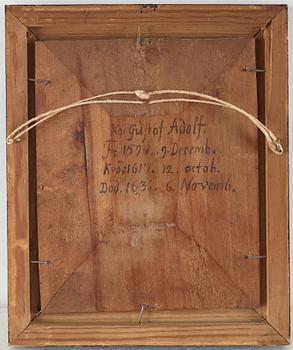 Ko: Gustaf Adolf.
F: 1594. 9. Decemb.
Krö: 1617. 12. octob.
Död. 1632. 6. Novemb.